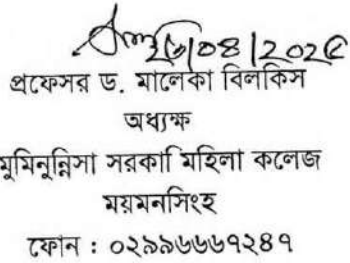 /০৪/২০২৫
প্রফেসর ড. মালেকা বিলকিস
অধ্যক্ষ
মুমিনুন্নিসা সরকারি মহিলা কলেজ
ময়মনসিংহ
ফোন : ০২৯৯৬৬৬৭২৪৭